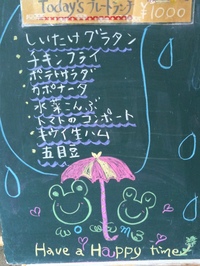 Today's プレートランチ
¥1000
・しいたけグラタン
・チキンフライ
・ポテトサラダ
・カポナータ
・水菜こんぶ
・トマトのコンポート
・キウイ生ハム
・五目豆
Have a Happy time